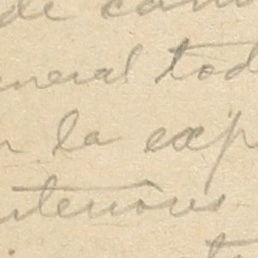 de com
neral tod
n la exp
nteriores